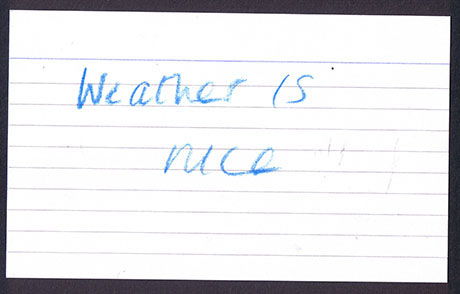 Weather is
nice